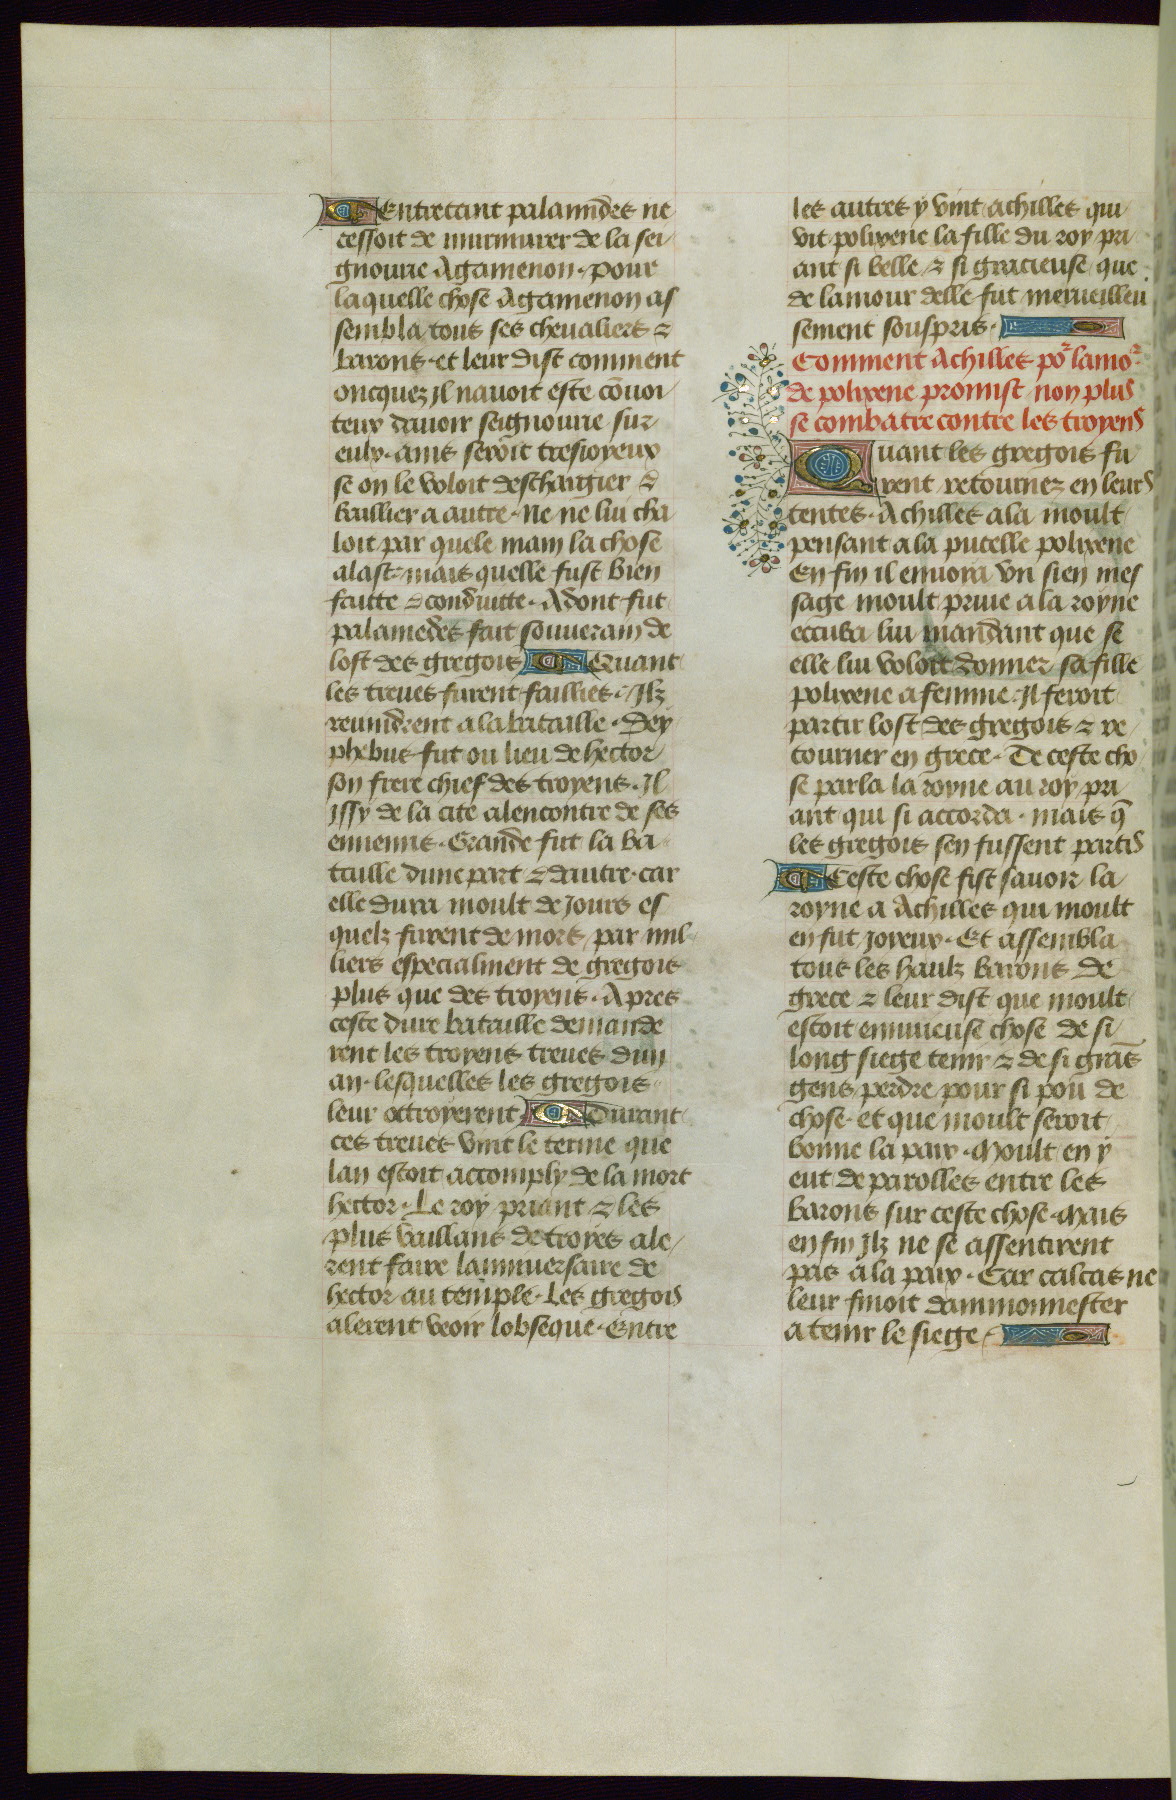 Entretant palamidres ne
cessoit de murmurer de la sei
gnourie Agamenon. pour
la quelle chose Agamenon as
sembla tous ses cheualiers ⁊
barons. et leur dist comment
oncquez il nauoit este cōuoi
teux dauoir seignourie sur
eulx. ains seroit tresioyeux
se on le voloit deschargier ⁊
baillier a autre. Ne ne lui cha
loit par quele main la chose
alast. mais quelle fust bien
faitte ⁊ conduitte. Adont fut
palamedes fait souuerain de
lost des gregois Quant
les treues furent faillies. Jlz
reuindrent a la bataille. Dey
phebus fut ou lieu de hector
son frere chief des troyens. Il
Jssy de la cite alencontre de ses
ennemis. Grande fut la ba
taille dune part ⁊ dautre. car
elle dura moult de Jours es
quelz furent de mors par mil
liers especialment de gregois
plus que des troyens. Apres
ceste dure bataille demande
rent les troyens treues dun
an. lesquelles les gregois
leur octroyerent Durant
ces treues vint le terme que
lan estoit accomply de la mort
hector. Le roy priant ⁊ les
plus vaillans de troyes ale
rent faire lanniuersaire de
hector au temple. Les gregois
alerent veoir lobseque. Entre
les autres y vint achilles qui
vit polixene la fille du roy pri
ant si belle ⁊ si gracieuse que
de lamour delle fut merueilleu
sement souspris.
Comment Achilles po͛ lamo͛
de polixene promist non plus
se combatre contre les troyens
Quant les gregois fu
rent retournez en leurs
tentes. Achilles ala moult
pensant a la pucelle polixene
En fin il enuoia vn sien mes
sage moult priue a la royne
eccuba lui mandant que se
elle lui voloit donner sa fille
polixene a femme. Il feroit
partir lost des gregois ⁊ re
tourner en grece. De ceste cho
se parla la royne au roy pri
ant qui si accorda. mais q̄
les gregois sen fussent partis
Ceste chose fist sauoir la
royne a Achilles qui moult
en fut Joyeux. Et assembla
tous les haulz barons de
grece ⁊ leur dist que moult
estoit ennuieuse chose de si
long siege tenir ⁊ de si grās
gens perdre pour si pou de
chose. et que moult seroit
bonne la paix. Moult en y
eut de parolles entre les
barons sur ceste chose. Mais
en fin Jlz ne se assentirent
pas a la paix. Car calcas ne
leur finoit dammonnester
a tenir le siege